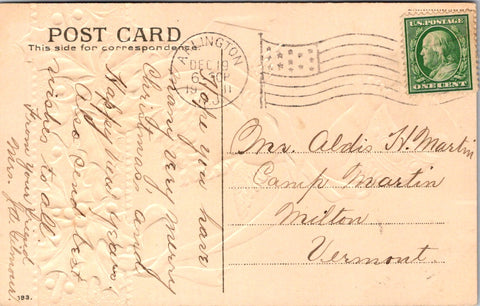 POST CARD
This side for correspondence.
ARLINGTON
DEC 19
6 30P
1911
U.S. POSTAGE
ONE CENT
Hope you have
many very merry
Christmas, and
Happy New years,
Also send best
wishes to all.
From your friend
Mrs. J.A. Gilmour
Mr. Aldis H. Martin
Camp Martin
Milton
Vermont.
193.